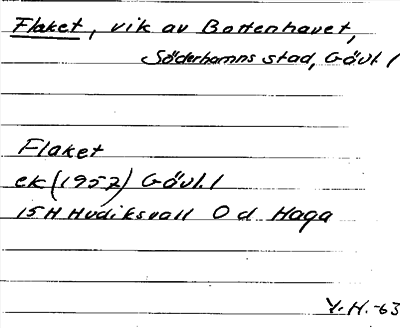 Flaket, vik av Bottenhavet,
Söderhamns stad, Gävl. l
Flaket
ek (1957) Gävl. l
15H Hudiksvall Od Haga
Y.H.-63